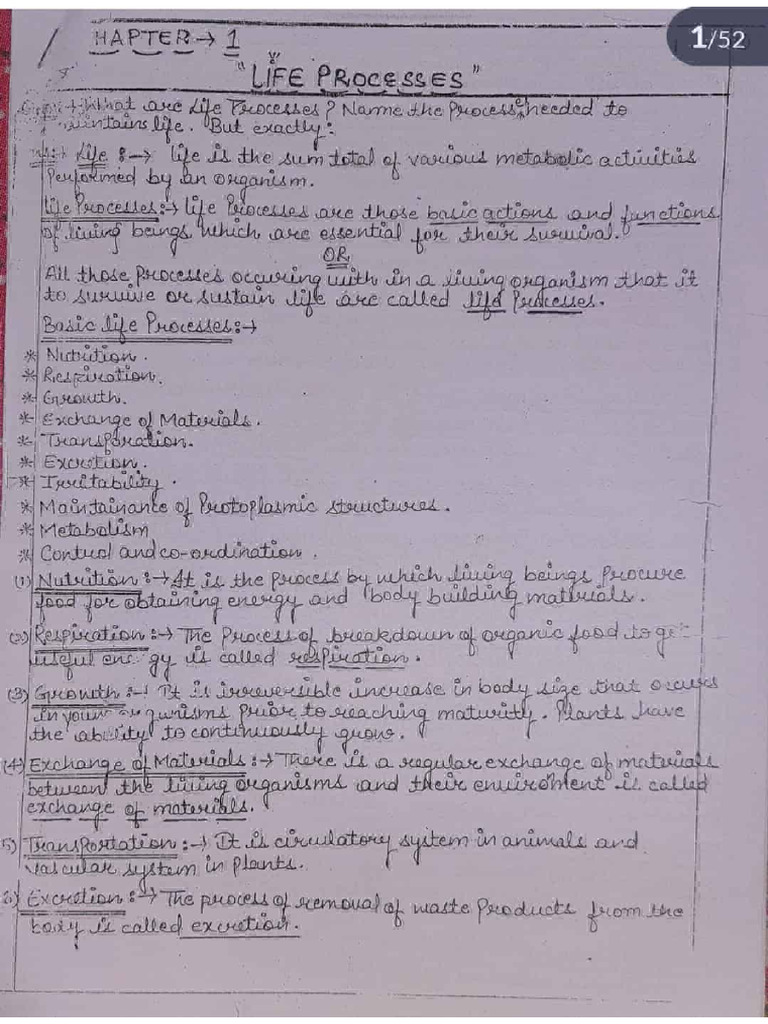 1/52
HAPTER → 1
"LIFE PROCESSES"
What are Life Processes? Name the Process needed to
maintains life. But exactly:
Ans:→ Life :→ Life is the sum total of various metabolic activities
Performed by an organism.
Life Processes:→ Life Processes are those basic actions and functions
of living beings which are essential for their survival.
OR
All those Processes occuring with in a living organism that it
to survive or sustain life are called life Processes.
Basic life Processes:→
* Nutrition.
* Respiration.
* Growth.
* Exchange of Materials.
* Transporation.
* Excretion.
* Irritability.
* Maintainance of Protoplasmic structures.
* Metabolism
* Control and co-ordination.
(1) Nutrition:→ It is the process by which living beings Procure
food for obtaining energy and body building materials.
(2) Respiration:→ The Process of breakdown of organic food to get
useful energy is called respiration.
(3) Growth:→ It is irreversible increase in body size that occurs
in young organisms Prior to reaching maturity. Plants have
the ability to continuously grow.
(4) Exchange of Materials:→ There is a regular exchange of materials
between the living organisms and their enviroment is called
exchange of materials.
5) Transportation:→ It is circulatory system in animals and
vascular system in Plants.
6) Excretion:→ The process of removal of waste Products from the
body is called excretion.